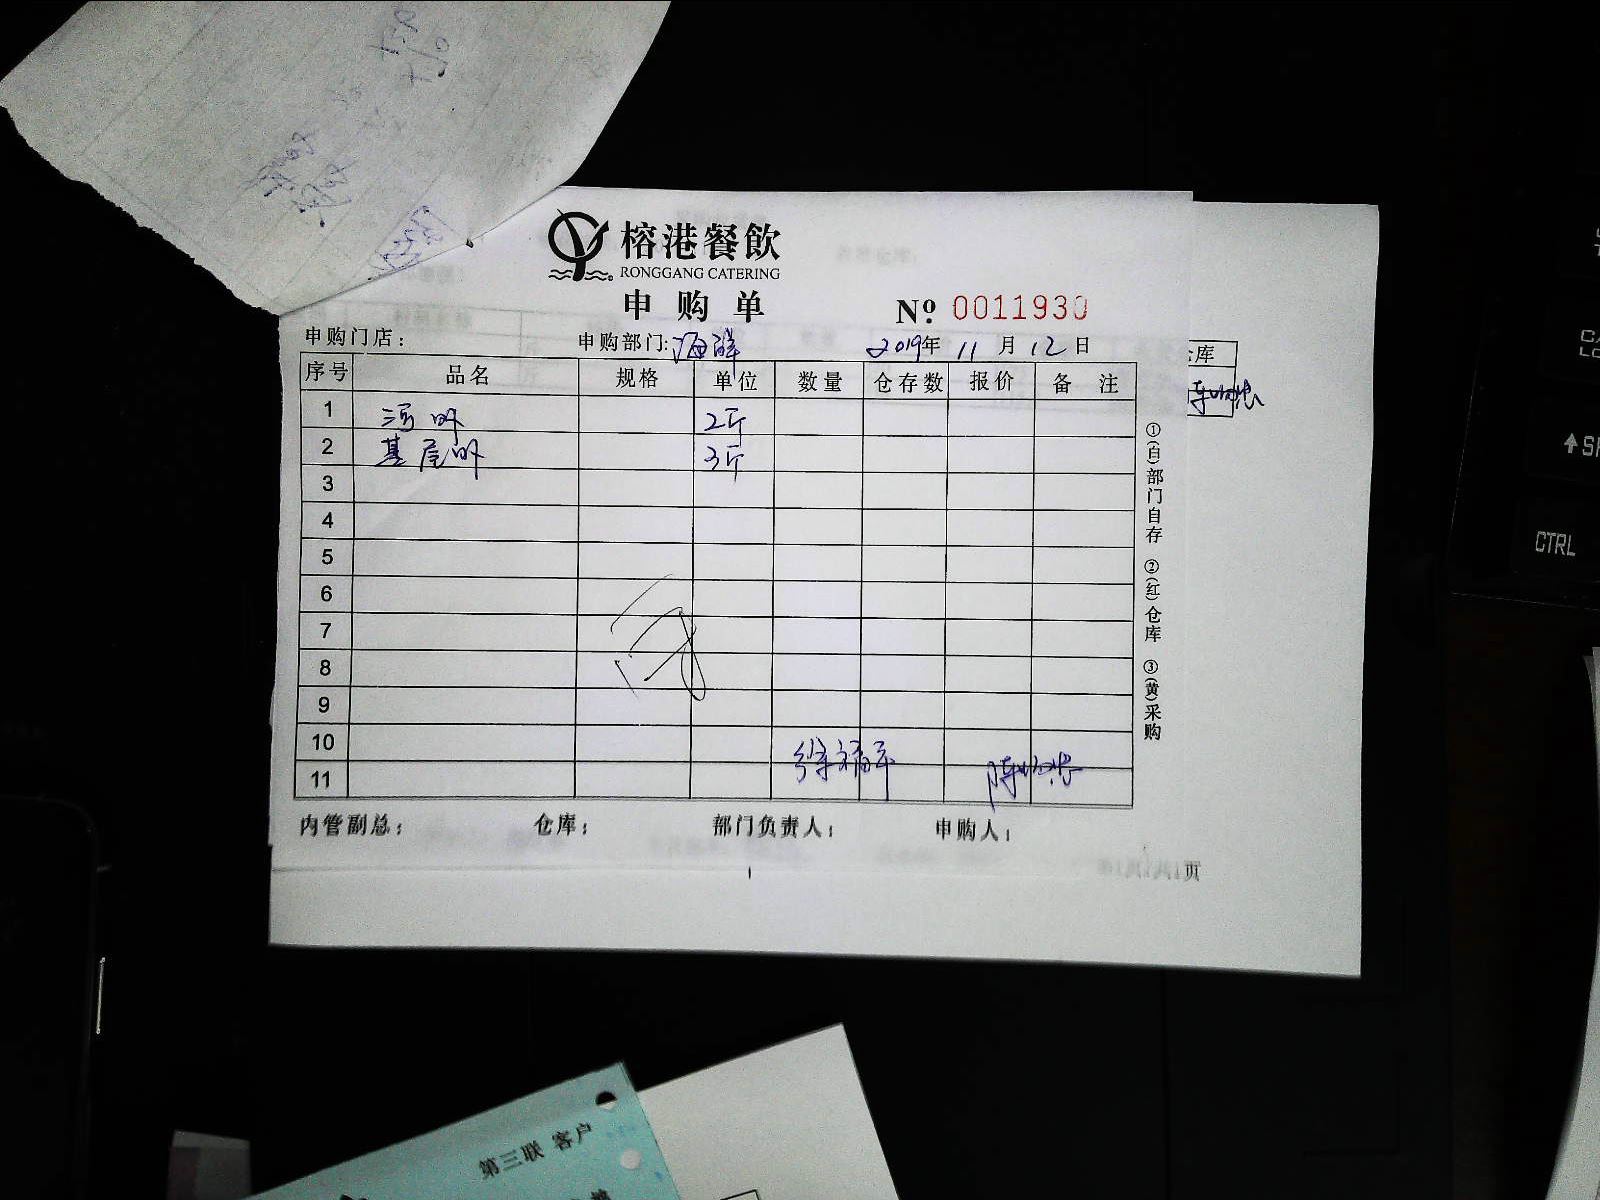 榕港餐飲
RONGGANG CATERING
申购单
№ 0011930
申购门店：
申购部门：海鲜
2019年 11 月 12 日
序号 品名 规格 单位 数量 仓存数 报价 备 注
1 河虾 2斤
2 基尾虾 3斤
3
4
5
6
7
8
9
10
11
徐福平
内管副总： 仓库： 部门负责人： 申购人：
①(白)部门自存 ②(红)仓库 ③(黄)采购
仓库
共1页
第三联 客户
CTRL